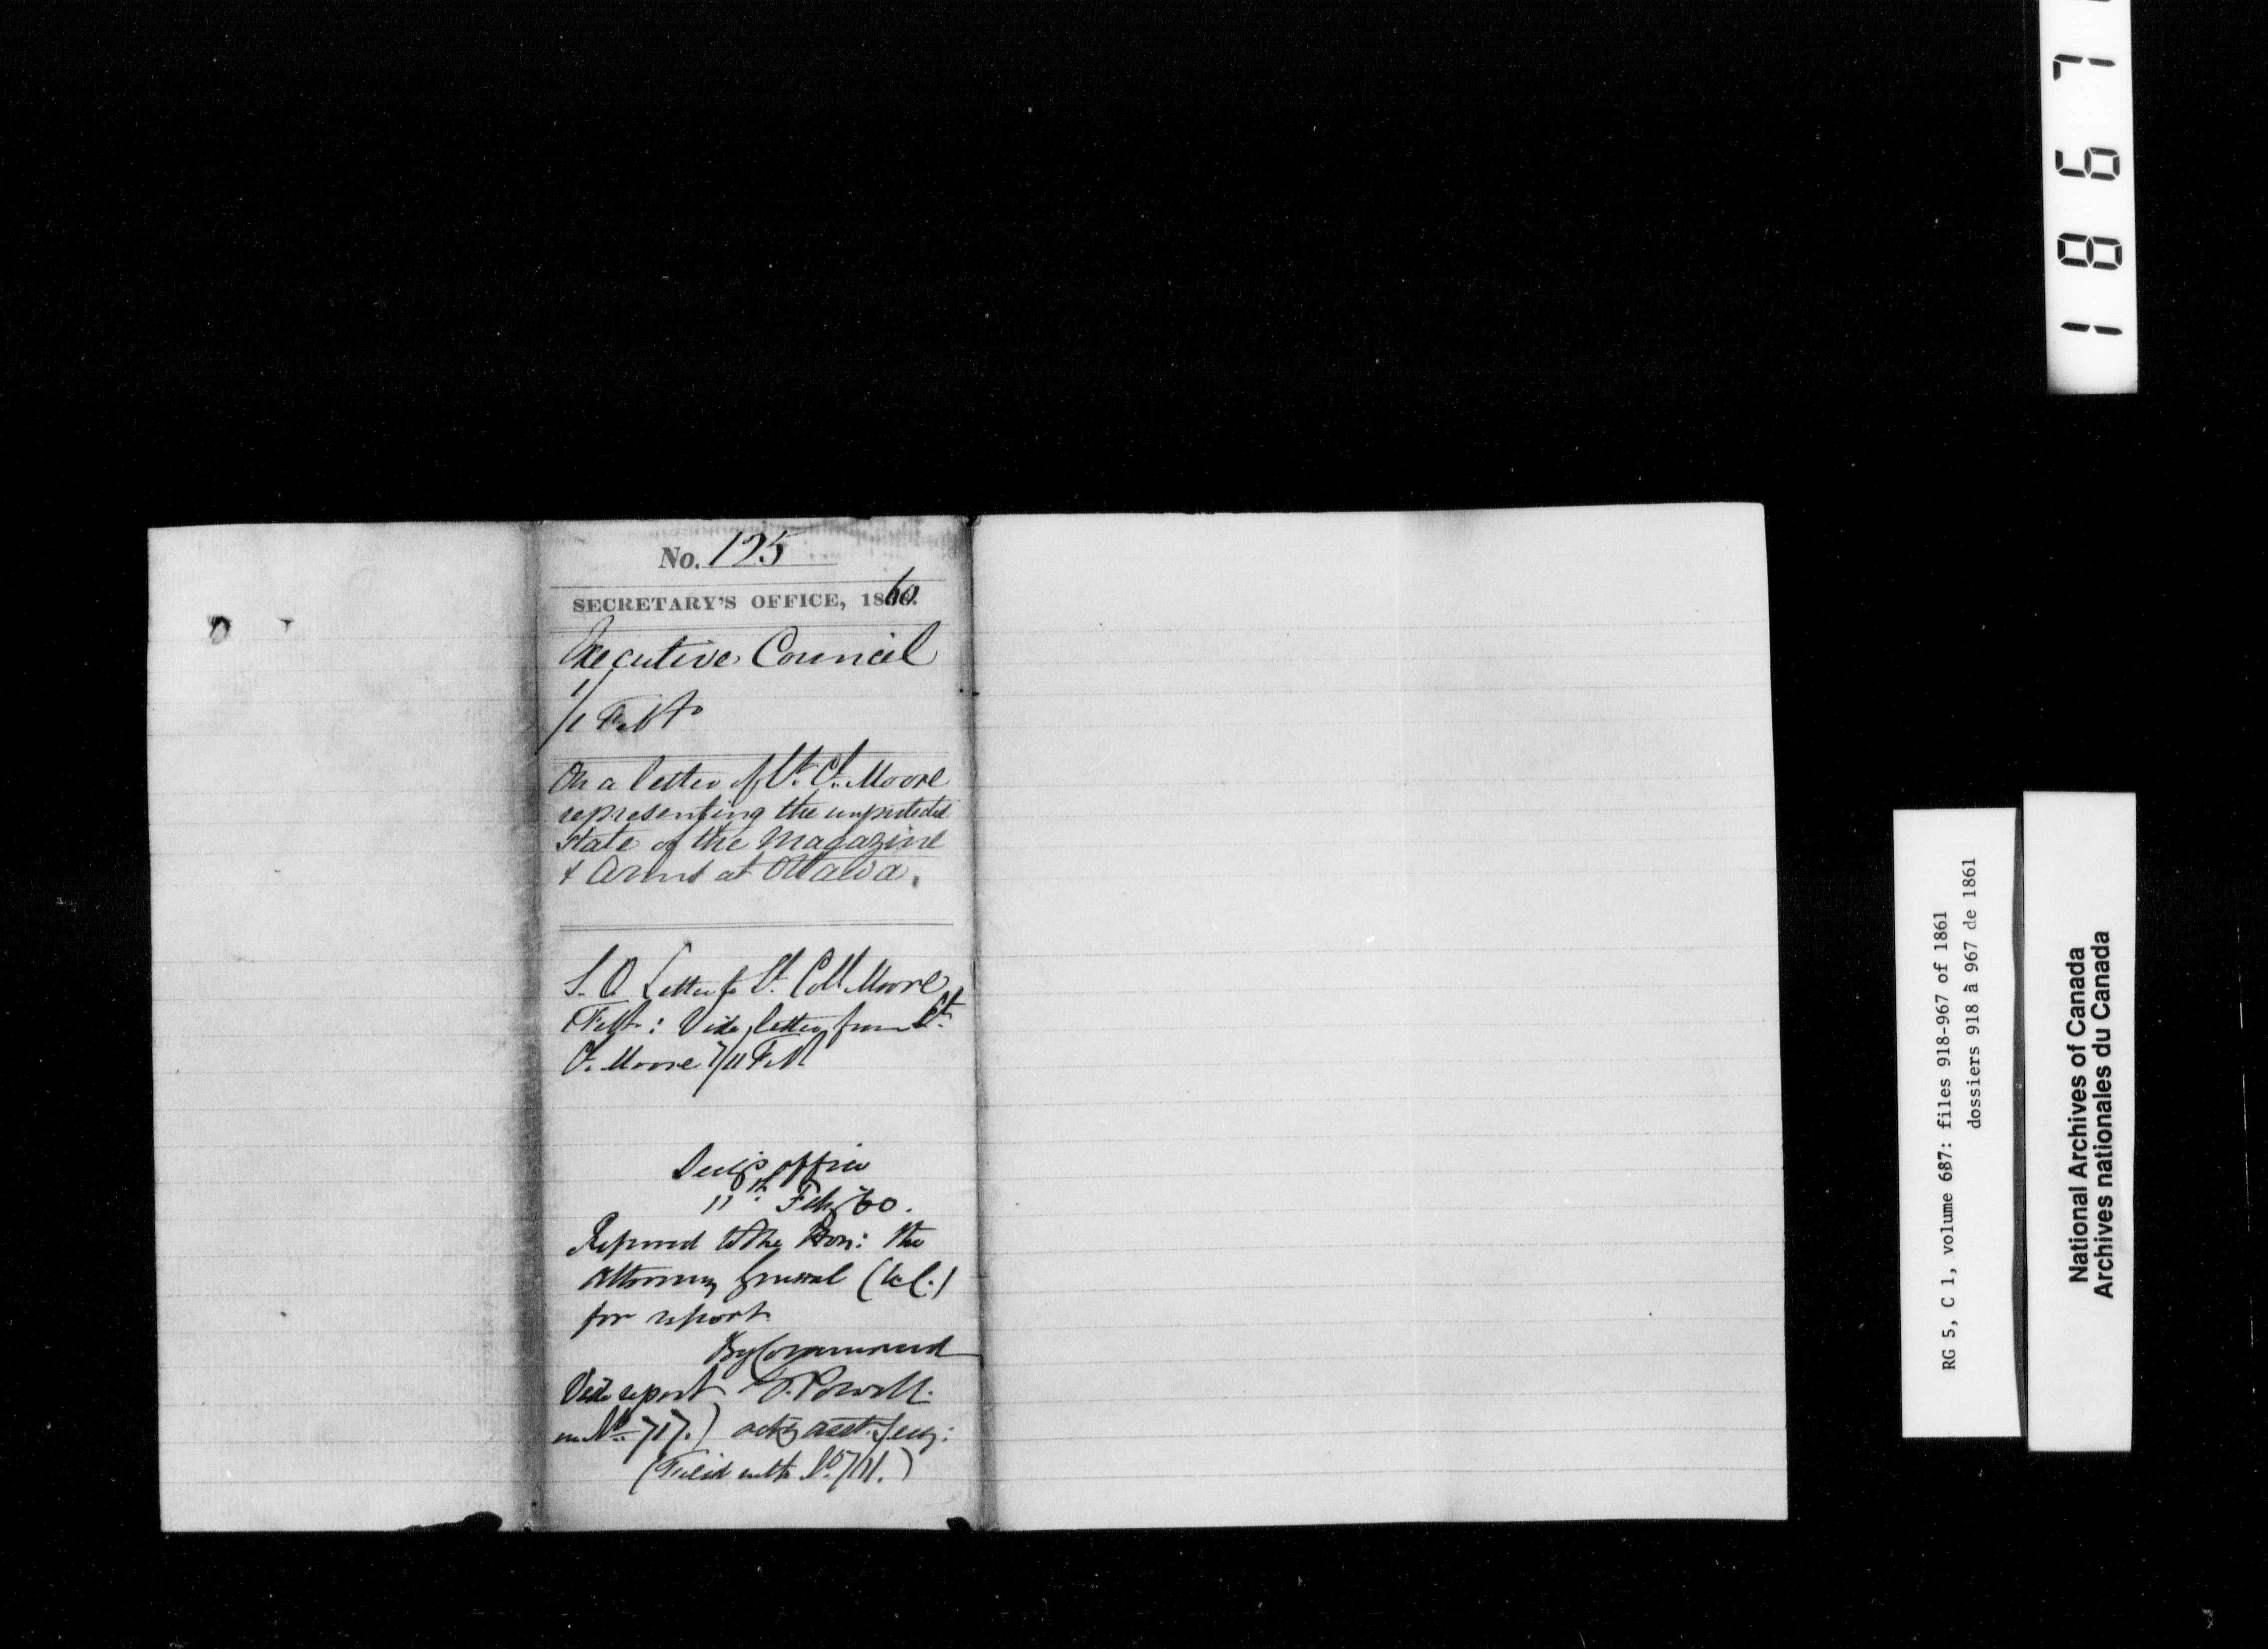 No. 125
SECRETARY'S OFFICE, 1860.
Executive Council
1/1 Feb
On a letter of Lt. Cl. Moore
representing the unprotected
state of the Magazine
& Arms at Ottawa.
S. O. Letter to Lt. Coll Moore
Feb: Vide letter from Lt.
Cl. Moore 7/11 Feb
Secy's office
11th Feby 60.
Referred to the Hon: the
Attorney General (U.C.)
for report.
By Command
Vide report E. Powell.
on No. 717.) actg asst. Secy:
(Filed with No. 717.)
1 8 6 7
RG 5, C 1, volume 687: files 918-967 of 1861
dossiers 918 à 967 de 1861
National Archives of Canada
Archives nationales du Canada